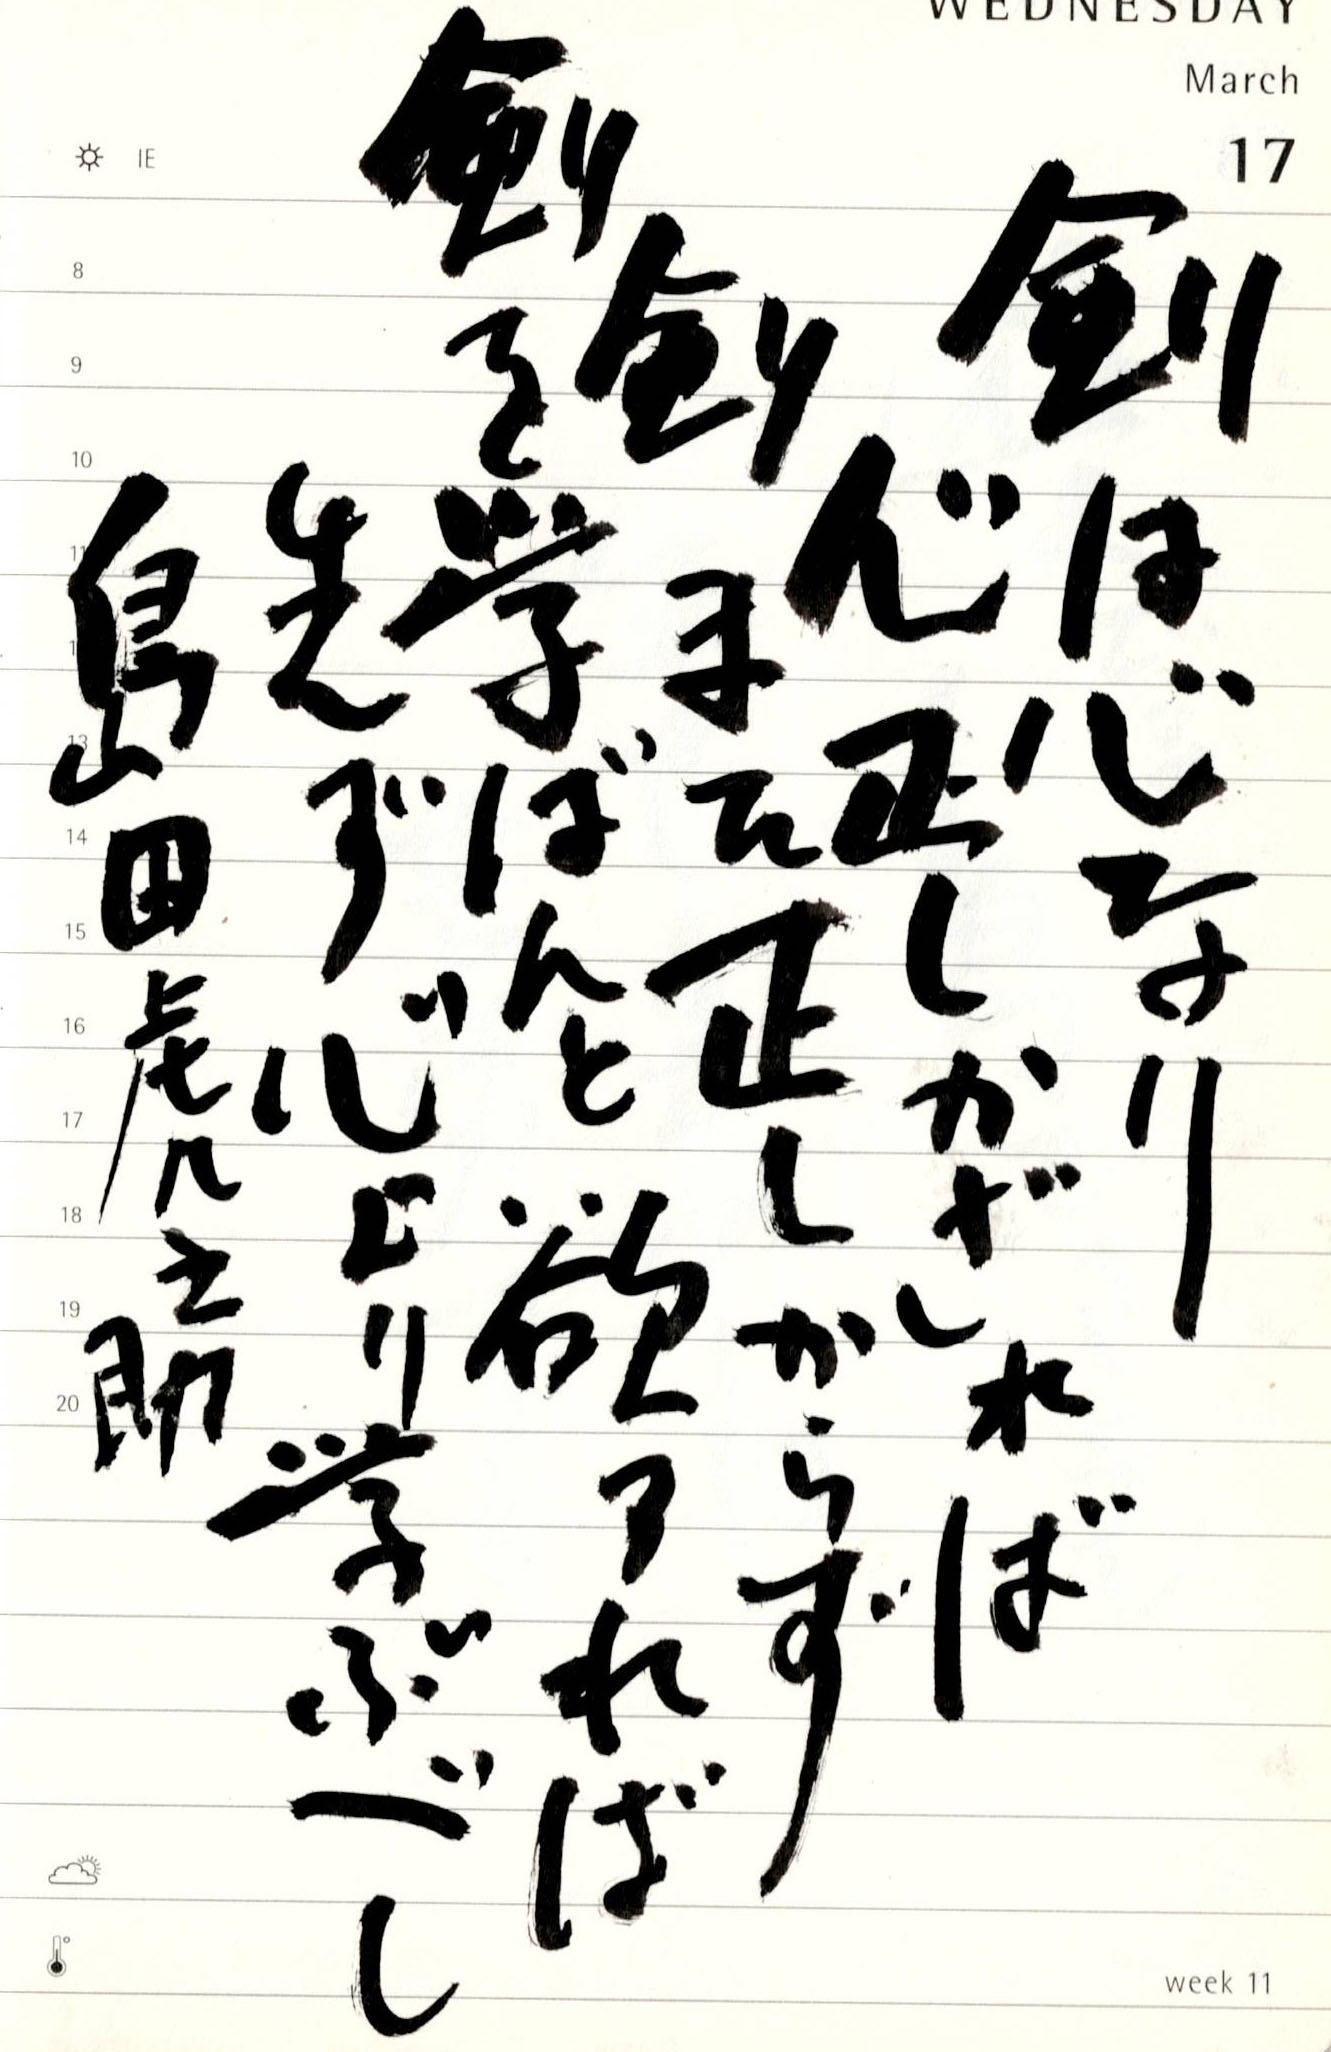 WEDNESDAY
March
17
IE
剣は心なり
心正しかざれば
剣また正しからず
剣を学ばんと欲アれば
先ず心より学ぶべし
島田虎之助
8
9
10
11
13
14
15
16
17
18
19
20
week 11